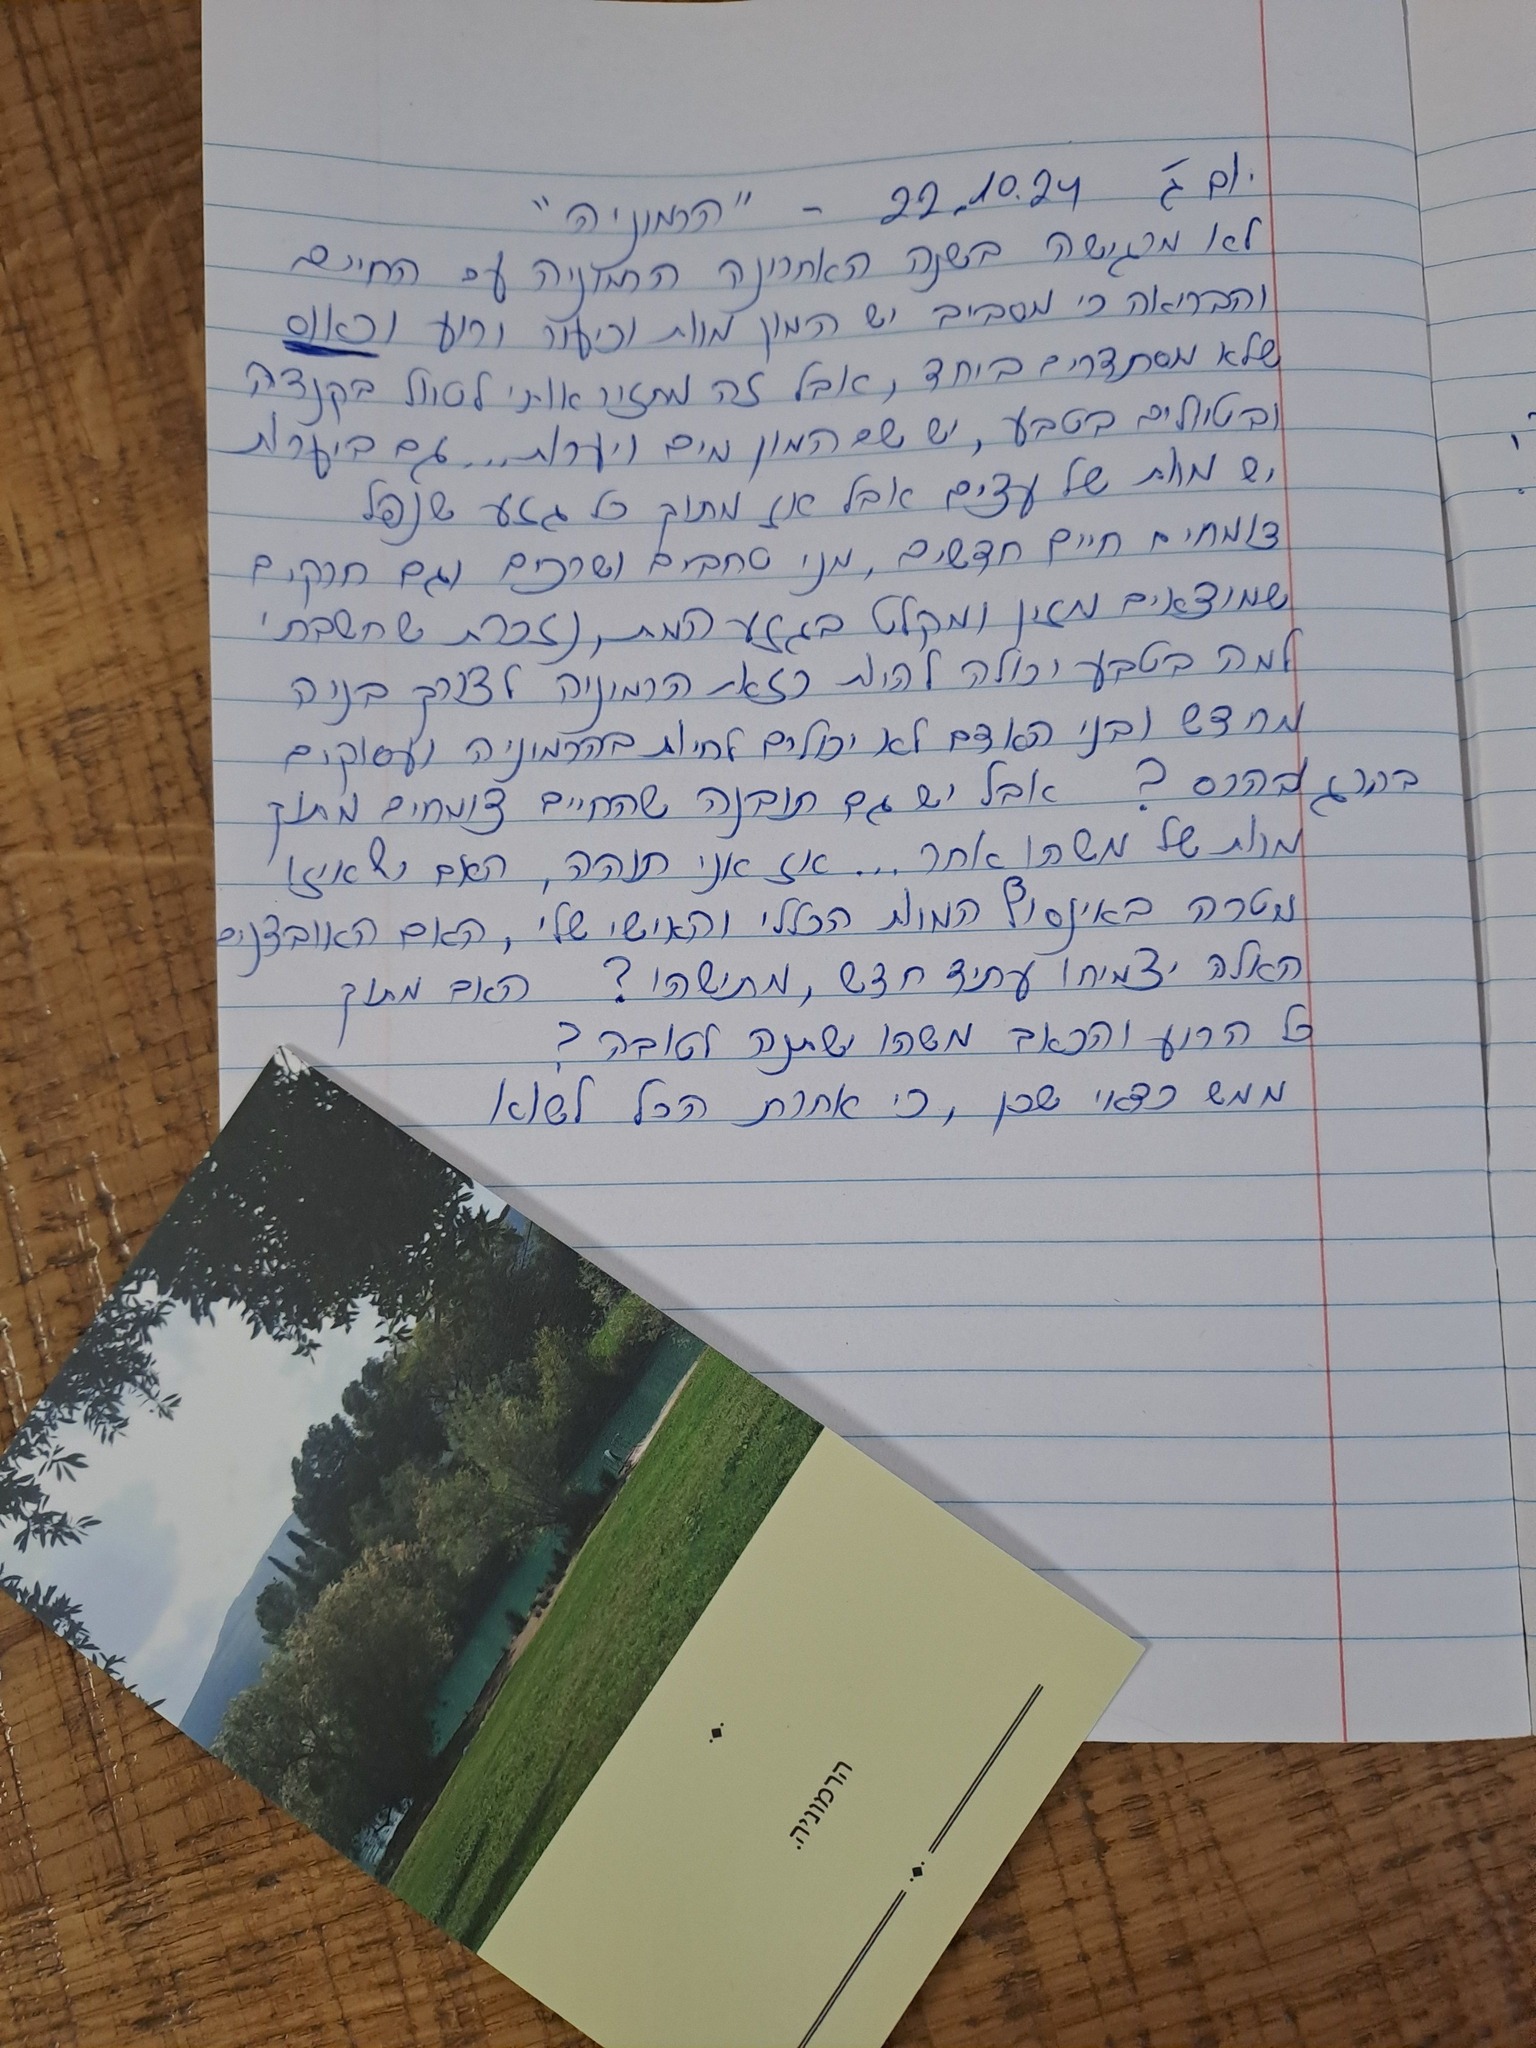 יום ג' 22.10.24 - "הרמוניה"
לא מרגישה בשנה האחרונה הרמוניה עם החיים
והבריאה כי מסביב יש המון מוות וכיעור ורוע וכאוס
שלא מסתדרים ביחד, אבל זה מחזיר אותי לטיול בקנדה
ובטיולים בטבע, יש שם המון מים ויערות... גם ביערות
יש מוות של עצים אבל אז מתוך כל גזע שנפל
צומחים חיים חדשים, מני סחבים ושרכים וגם חרקים
שמוצאים מזין ומקלט בגזע המת, נזכרת שחשבתי
למה בטבע יכולה להיות כזאת הרמוניה לצורך בניה
מחדש ובני האדם לא יכולים לחיות בהרמוניה ועסוקים
בהרג ובהרס? אבל יש גם תובנה שהחיים צומחים מתוך
מוות של משהו אחר... אז אני תוהה, האם יש איזו
מטרה באינסוף המוות הכללי והאישי שלי, האם האובדנים
האלה יצמיחו עתיד חדש, מתישהו? האם מתוך
כל הרוע והכאב משהו ישתנה לטובה?
ממש כדאי שכן, כי אחרת הכל לשווא
הרמוניה.